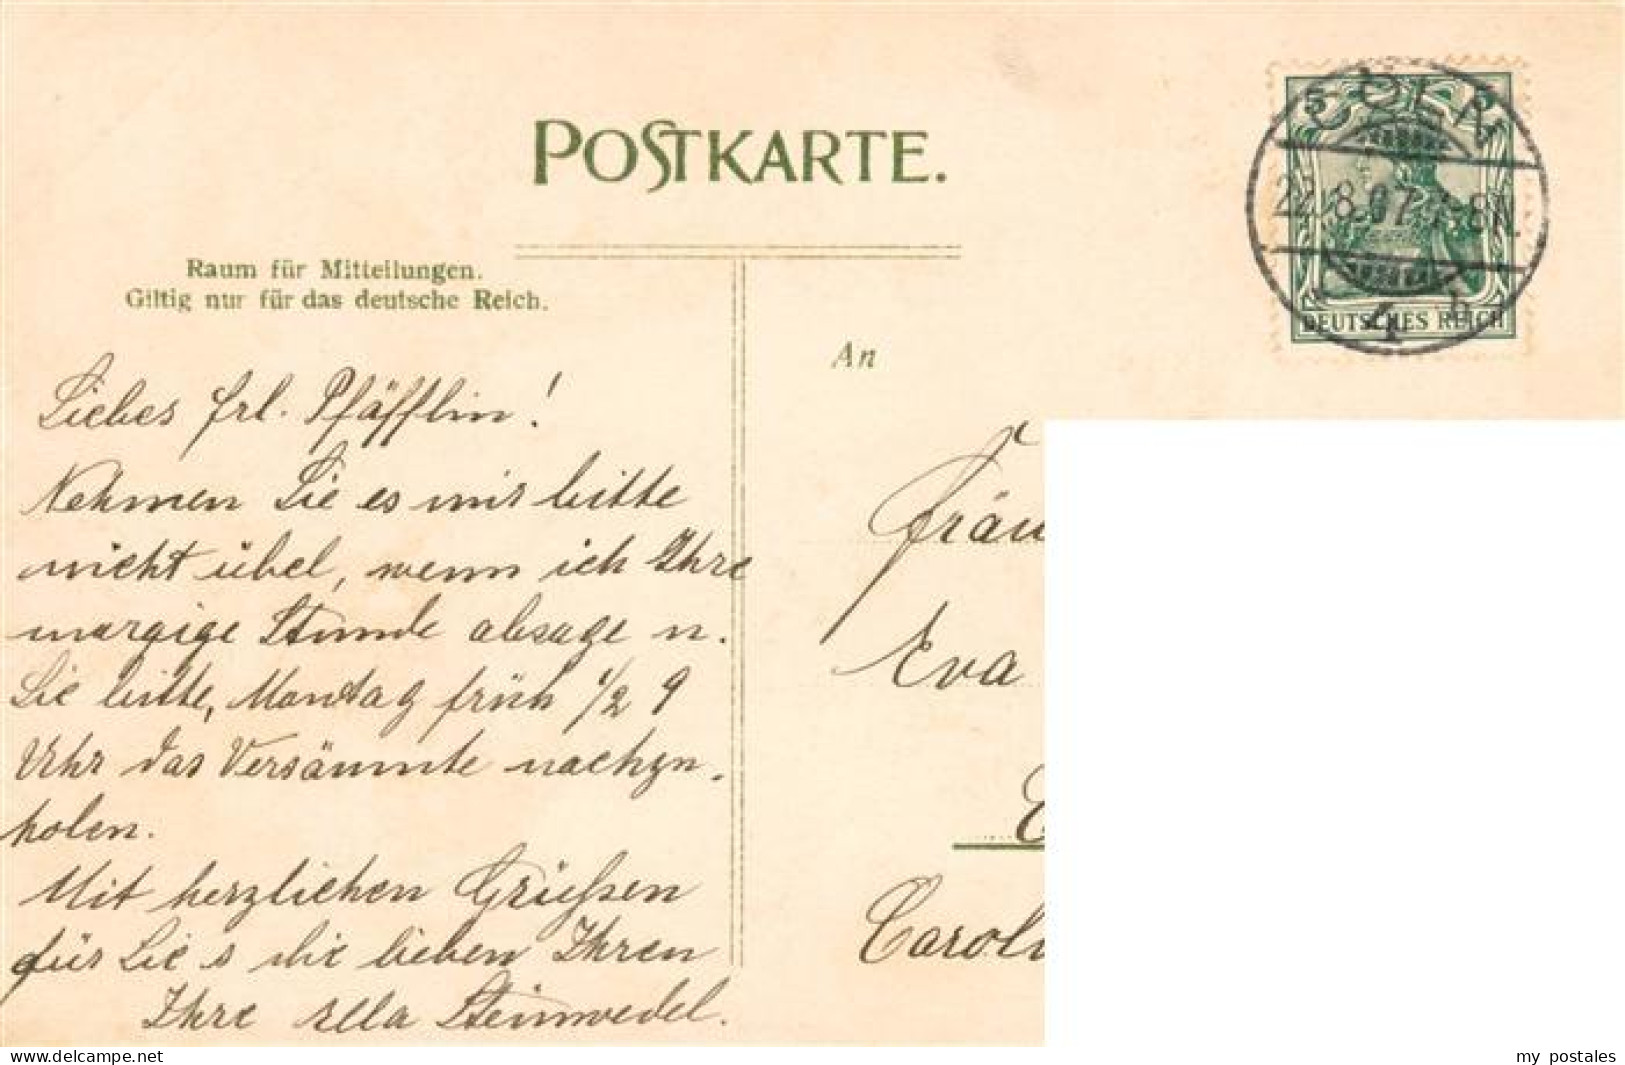 POSTKARTE.
Raum für Mitteilungen.
Giltig nur für das deutsche Reich.
5 5
CÖLN
22.8.07. 8N.
1 h
DEUTSCHES REICH
An
Liebes Frl. Pfäfflin!
Nehmen Sie es mir bitte
nicht übel, wenn ich Ihre
morgige Stunde absage u.
Sie bitte, Montag früh 1/2 9
Uhr das Versäumte nachzu-
holen.
Mit herzlichen Grüßen
für Sie u die lieben Ihren
Ihre Ella Steinwedel.
Fräu
Eva
Caroli
delcampe.net
my_postales